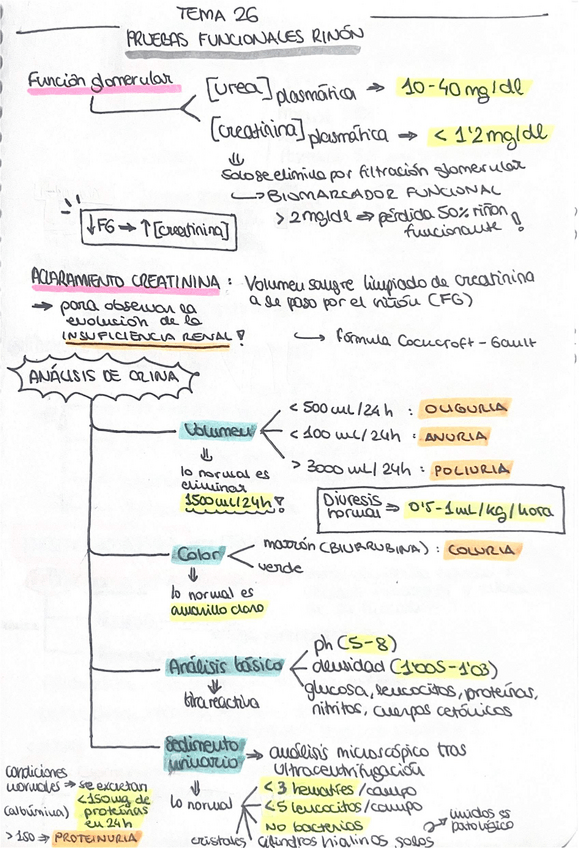 TEMA 26
PRUEBAS FUNCIONALES RIÑÓN
Función glomerular
[urea] plasmática → 10-40 mg/dl
[creatinina] plasmática → < 1'2 mg/dl
⇓
Solo se elimina por filtración glomerular
↳ BIOMARCADOR FUNCIONAL
> 2mg/dl ⇒ pérdida 50% riñón
funcionante !
↓FG → ↑[creatinina]
ACLARAMIENTO CREATININA : Volumen sangre limpiado de creatinina
a su paso por el riñón (FG)
→ para observar la
evolución de la
INSUFICIENCIA RENAL !
↳ Fórmula Cockcroft - Gault
ANÁLISIS DE ORINA
Volumen
< 500 mL/24h : OLIGURIA
< 100 mL/24h : ANURIA
> 3000 mL/24h : POLIURIA
⇓
lo normal es
eliminar
1500 mL/24h !
Diuresis
normal ⇒ 0'5-1mL/kg/hora
Color
marrón (BILIRRUBINA) : COLURIA
verde
⇓
lo normal es
amarillo claro
Análisis básico
⇓
tira reactiva
ph (5-8)
densidad (1'005-1'03)
glucosa, leucocitos, proteínas,
nitritos, cuerpos cetónicos
Sedimento
urinario → análisis microscópico tras
ultracentrifugación
⇓
lo normal
< 3 hematíes /campo
< 5 leucocitos /campo
NO bacterias
cristales
cilindros hialinos solos
unidos es
patológico
condiciones
normales → se excretan
(albúmina) <150mg de
proteínas
en 24h
> 150 → PROTEINURIA